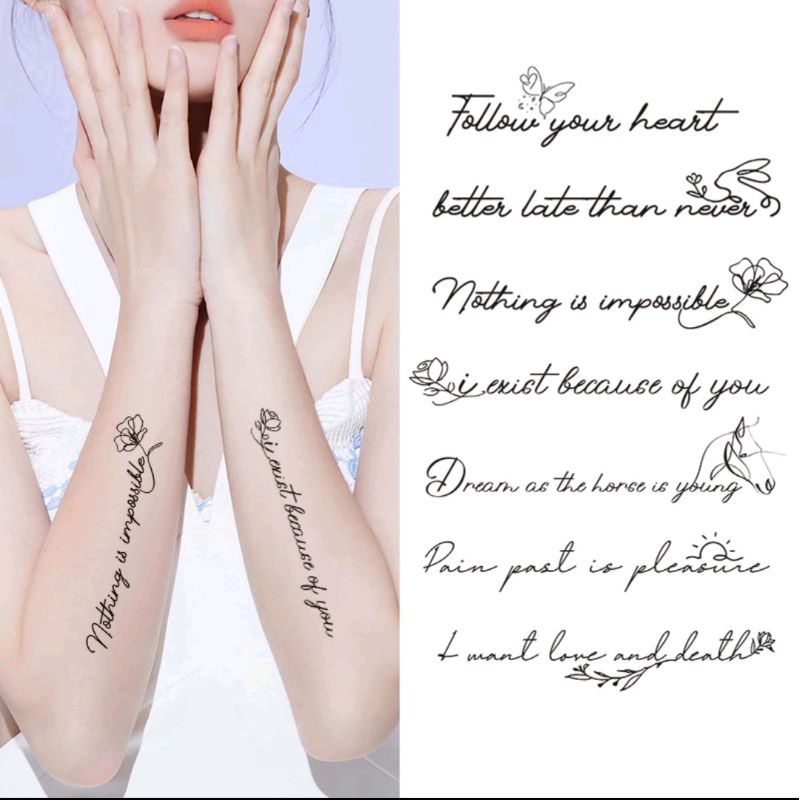 Nothing is impossible
i exist because of you
Follow your heart
better late than never
Nothing is impossible
i exist because of you
Dream as the horse is young
Pain past is pleasure
I want love and death